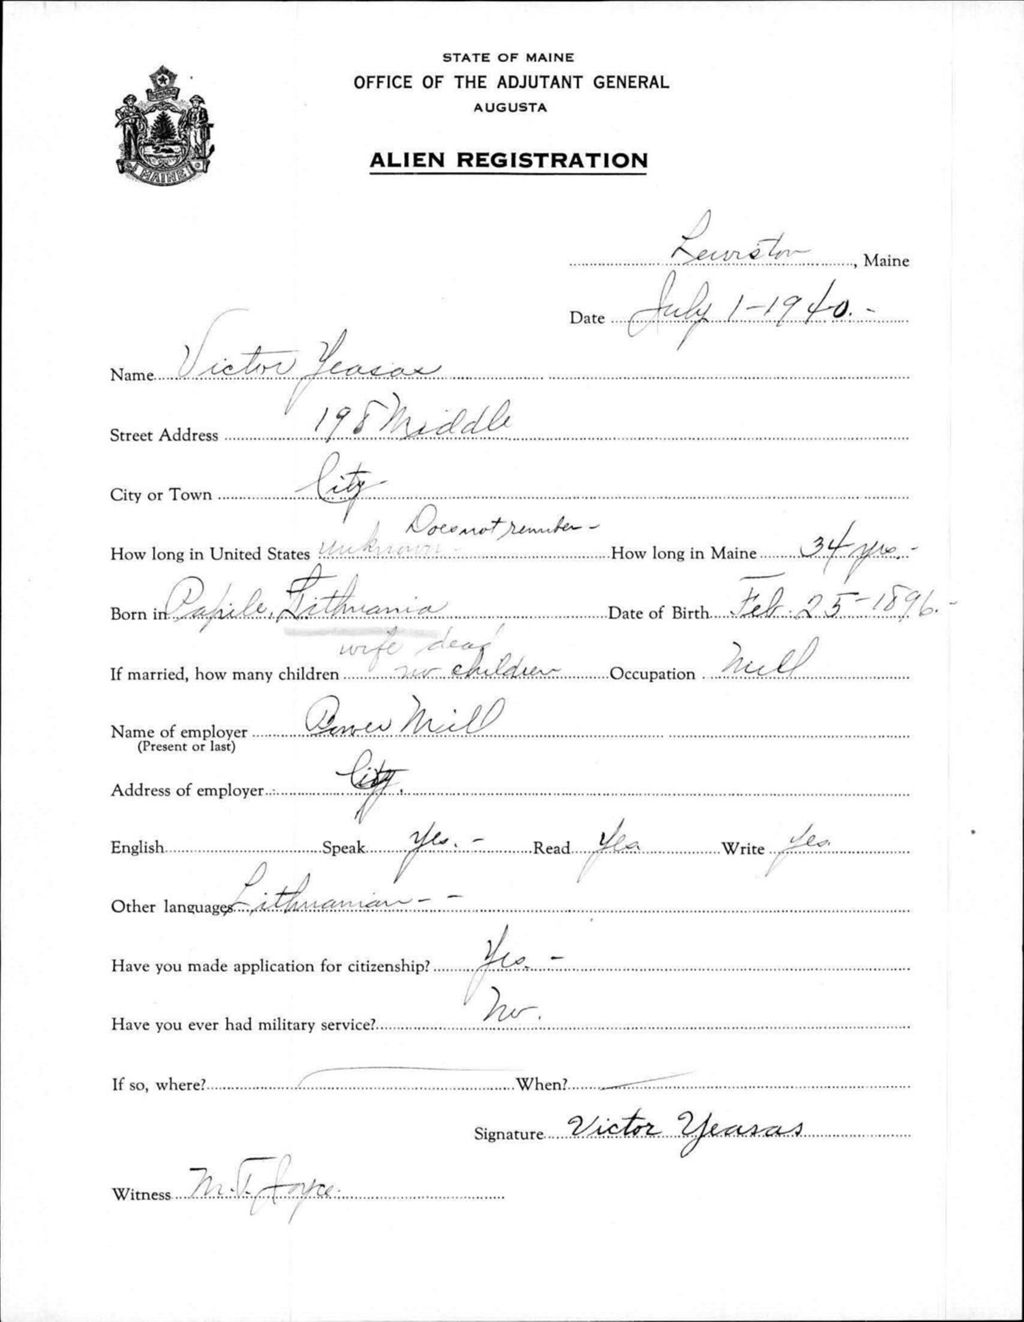 STATE OF MAINE
OFFICE OF THE ADJUTANT GENERAL
AUGUSTA
ALIEN REGISTRATION
MAINE
Lewiston, Maine
Date July 1-1940.-
Name Victor Yeasas
Street Address 198 Middle
City or Town City
Does not remember -
How long in United States unknown - How long in Maine 34 yrs.-
Born in Papile, Lithuania Date of Birth Feb. 25-1896.-
wife dead
If married, how many children no children Occupation Mill
Name of employer Mill
(Present or last)
Address of employer City.
English Speak Yes.- Read Yes Write Yes
Other languages Lithuanian - -
Have you made application for citizenship? Yes.-
Have you ever had military service? No.
If so, where? When?
Signature Victor Yeasas
Witness M. T. Joyce.